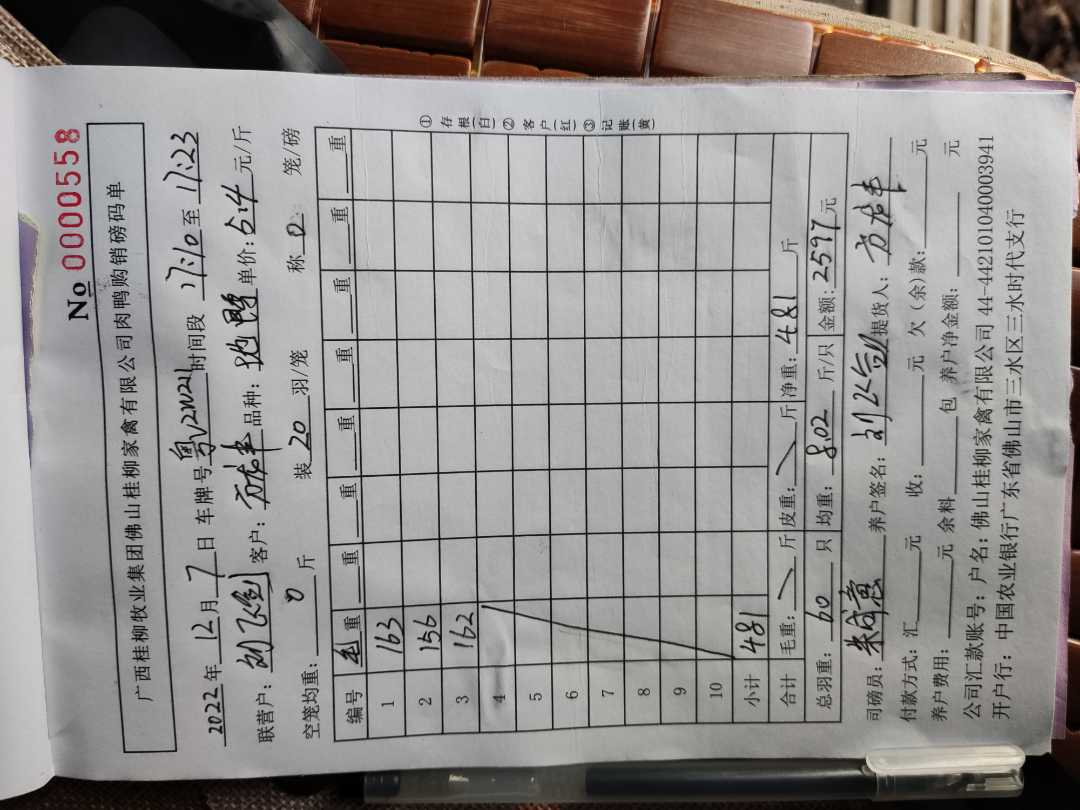 No 0000558
广西桂柳牧业集团佛山桂柳家禽有限公司肉鸭购销磅码单
2022年12月7日 车牌号 粤V2W21 时间段 17:10至17:23
联营户：刘飞剑 客户：方龙丰 品种： 鸭 单价：5.4元/斤
空笼均重：0斤 装20羽/笼 称0笼/磅
编号 毛重 重 重 重 重 重 重 重
1 163
2 156
3 162
4
5
6
7
8
9
10
小计 481
合计 毛重： 斤 皮重： 斤 净重：481 斤
总羽重：60 只 均重：8.02 斤/只 金额：2597元
①存根(白)②客户(红)③记账(黄)
司磅员：朱成意 养户签名：刘飞剑 提货人：方龙丰
付款方式：汇 元 收： 元 欠（余）款： 元
养户费用： 元 余料 包 养户净金额： 元
公司汇款账号：户名：佛山桂柳家禽有限公司 44-442101040003941
开户行：中国农业银行广东省佛山市三水区三水时代支行